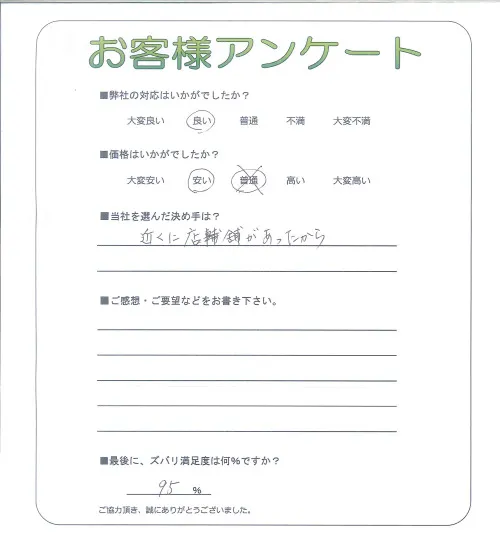 お客様アンケート
■弊社の対応はいかがでしたか？
大変良い 良い 普通 不満 大変不満
■価格はいかがでしたか？
大変安い 安い 普通 高い 大変高い
■当社を選んだ決め手は？
近くに店舗舗があったから
■ご感想・ご要望などをお書き下さい。
■最後に、ズバリ満足度は何%ですか？
95 %
ご協力頂き、誠にありがとうございました。